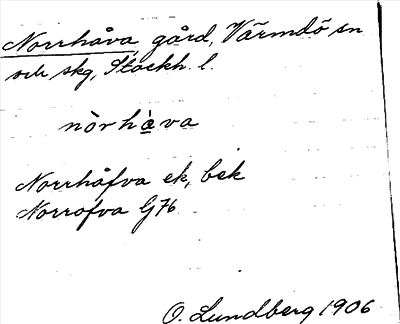 Norrhåva, gård, Värmdö sn
och skg, Stockh. l.
nòrhàva
Norrhåfva ek, bek
Norrofva G76
O. Lundberg 1906